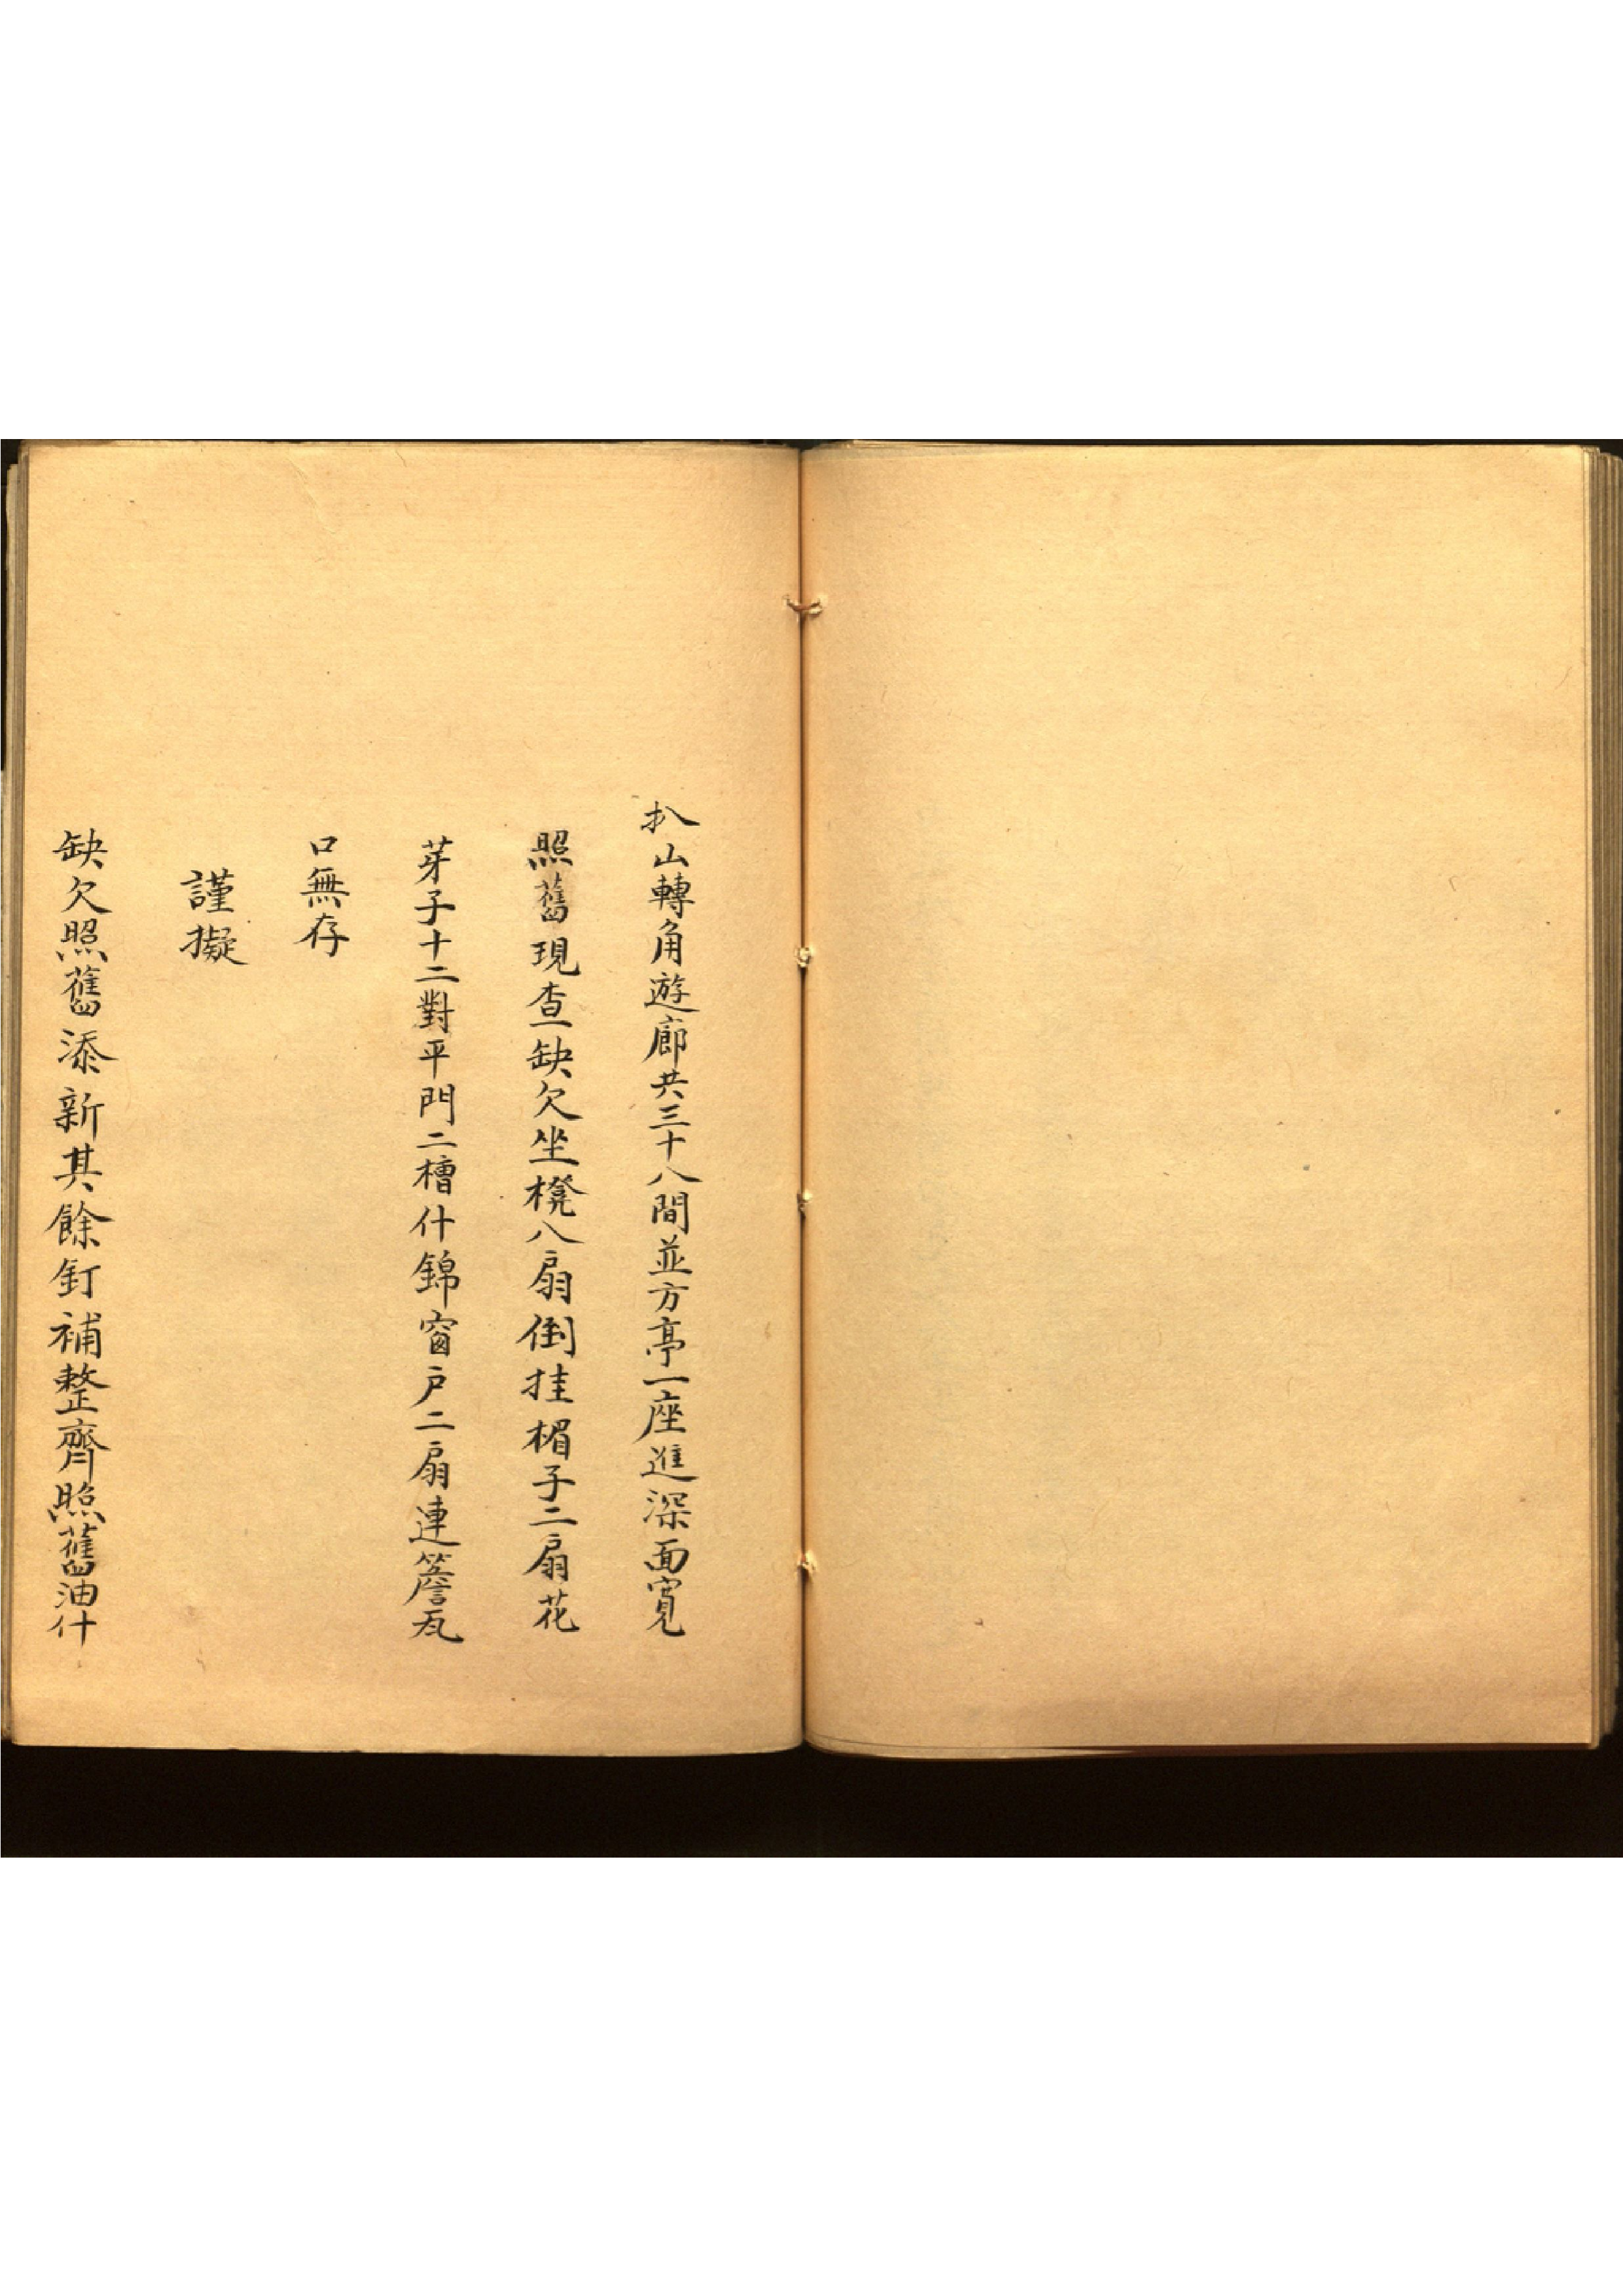 扒山轉角遊廊共三十八間並方亭一座進深面寬
照舊現查缺欠坐櫈八扇倒挂楣子二扇花
芽子十二對平門二槽什錦窗戶二扇連簷瓦
口無存
謹擬
缺欠照舊添新其餘釘補整齊照舊油什